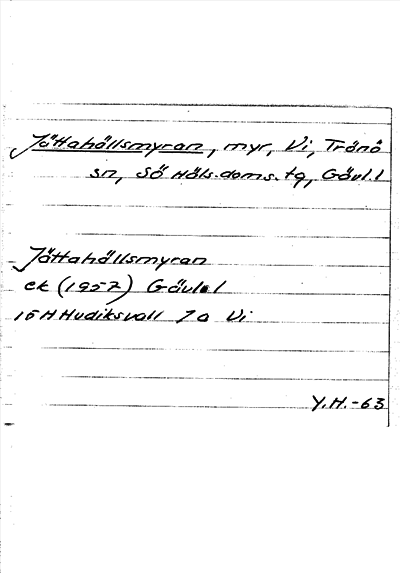 Jättahällsmyran, myr, Vi, Tranö
sn, Sö Häls.doms.tg, Gävl.l
Jättahällsmyran
ek (1957) Gävle l
15H Hudiksvall 7a Vi
Y.H.-63